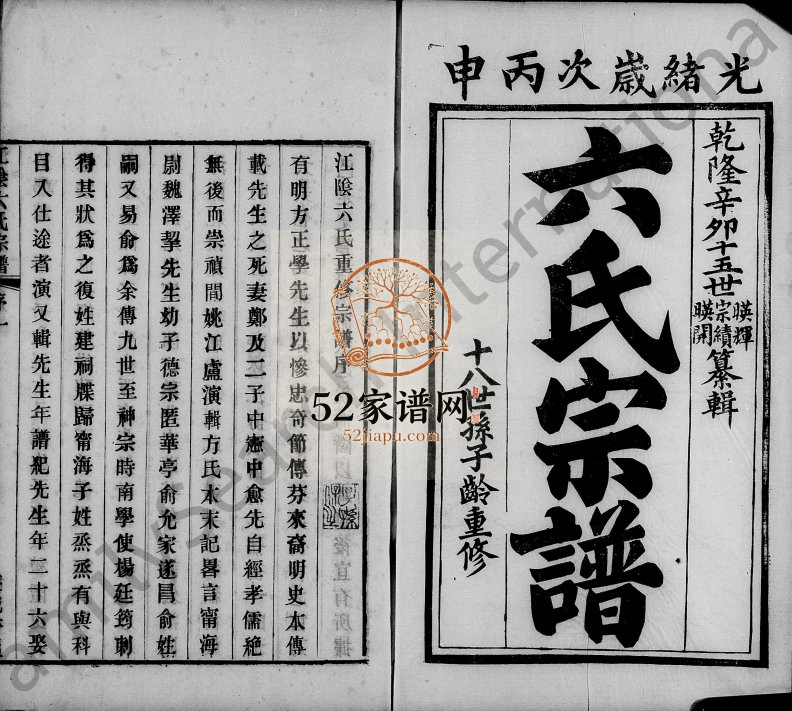 光緒歲次丙申
乾隆辛卯十五世
暎輝
宗績
暎開
纂輯
六氏宗譜
十八世孫子齡重修
江陰六氏重修宗譜序
有明方正學先生以慘忠奇節傳芬來裔明史本傳
載先生之死妻鄭及二子中憲中愈先自經孝儒絶
無後而崇禎間姚江盧演輯方氏本末記畧言甯海
尉魏澤挈先生幼子德宗匿華亭俞允家遂昌俞姓
嗣又易俞爲余傳九世至神宗時南學使楊廷筠刺
得其狀爲之復姓建祠牒歸甯海子姓烝烝有與科
目入仕途者演又輯先生年譜紀先生年三十六娶
江陰六氏宗譜 序一
後宜有所據
52家谱网
52jiapu.com
FamilySearch International